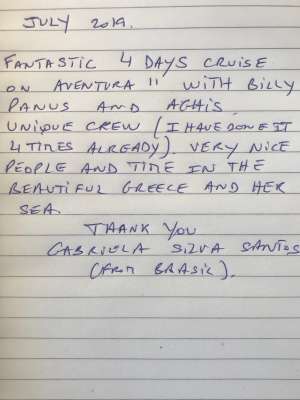 JULY 2019.
FANTASTIC 4 DAYS CRUISE
ON AVENTURA II WITH BILLY
PANUS AND AGHIS
UNIQUE CREW (I HAVE DONE IT
4 TIMES ALREADY). VERY NICE
PEOPLE AND TIME IN THE
BEAUTIFUL GREECE AND HER
SEA.
THANK YOU
GABRIELA SILVA SANTOS
(FROM BRASIL).